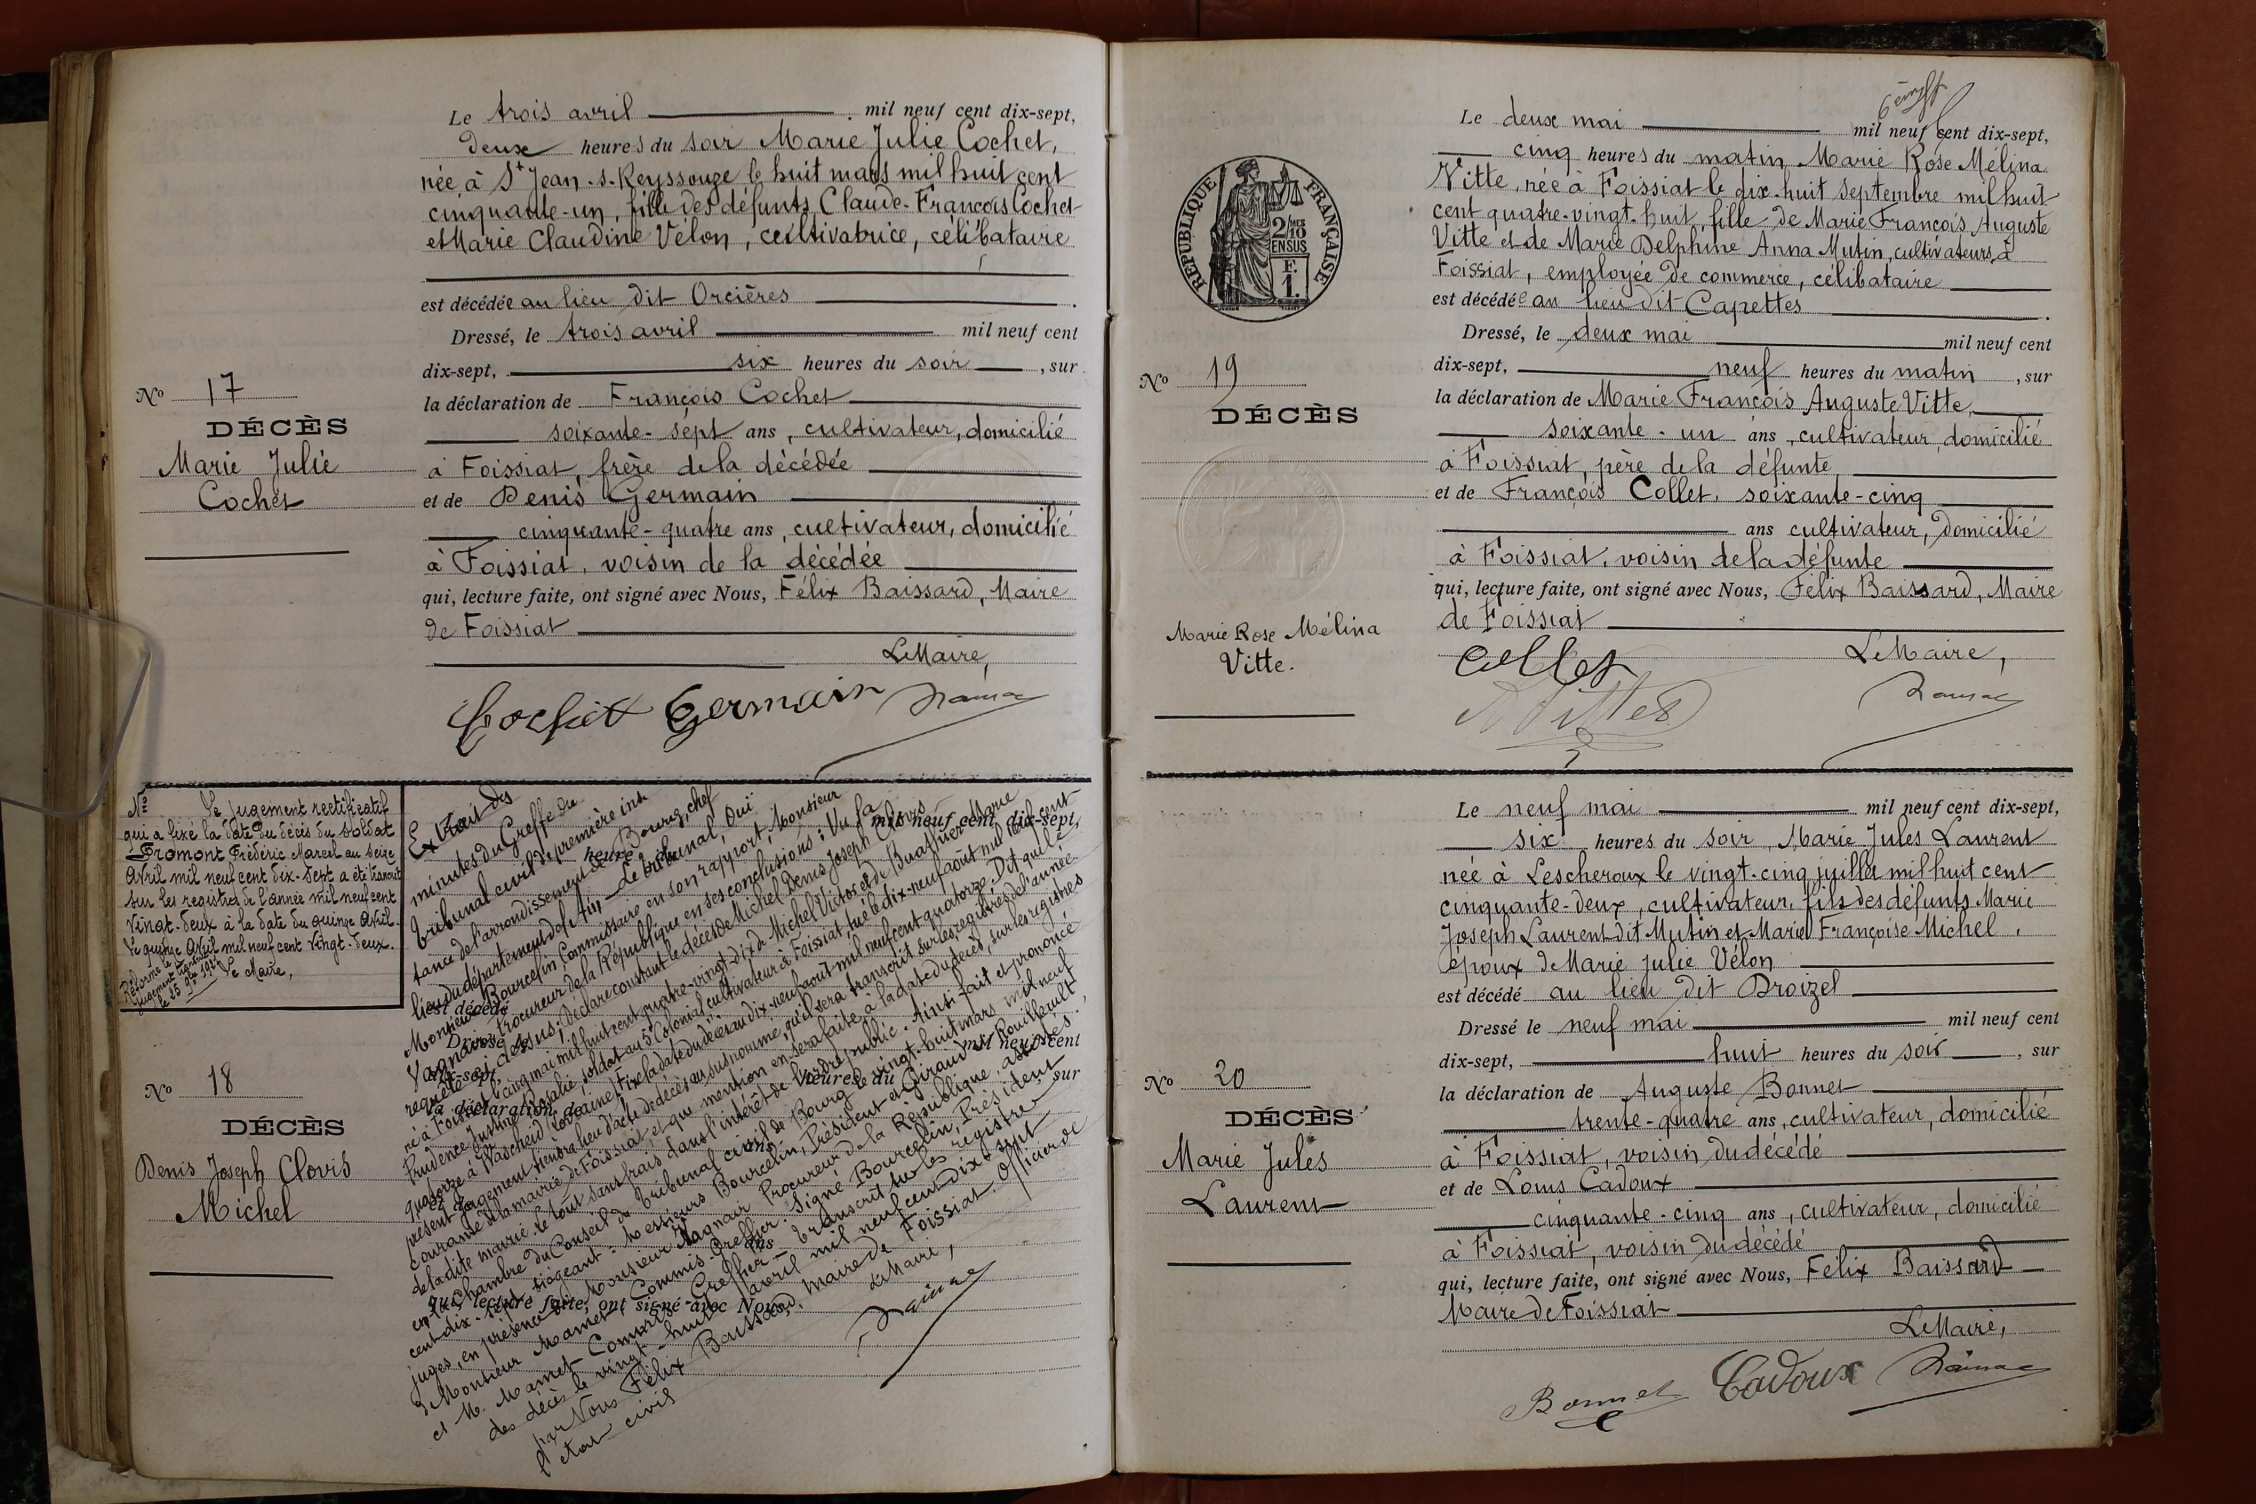 Le trois avril mil neuf cent dix-sept,
deux heures du soir Marie Julie Cochet,
née à St Jean-s-Reyssouze le huit mars mil huit cent
cinquante-un, fille des défunts Claude-François Cochet
et Marie Claudine Vélon, cultivatrice, célibataire
est décédée au lieu dit Orcières
Dressé, le trois avril mil neuf cent
dix-sept, six heures du soir, sur
la déclaration de François Cochet
soixante-sept ans, cultivateur, domicilié
à Foissiat, frère de la décédée
et de Denis Germain
cinquante-quatre ans, cultivateur, domicilié
à Foissiat, voisin de la décédée
qui, lecture faite, ont signé avec Nous, Félix Baissard, Maire
de Foissiat
Le Maire,
Cochet Germain
No 17
DÉCÈS
Marie Julie
Cochet
No Le jugement rectificatif
qui a fixé la date du décès du soldat
Fromont Frédéric Marcel au seize
Avril mil neuf cent dix-sept a été transcrit
sur les registres de l'année mil neuf cent
vingt-deux à la date du quinze Avril.
Le quinze Avril mil neuf cent vingt-deux.
Le Maire,
No 18
DÉCÈS
Denis Joseph Clovis
Michel
Extrait des
minutes du Greffe du
tribunal civil de première ins
tance de l'arrondissement de Bourg, chef
lieu du département de l'Ain Le tribunal, Oui
Monsieur Bourcelin, Commissaire en son rapport, Monsieur
Vagnair procureur de la République en ses conclusions; Vu la
requête ci-dessus; Déclare constant le décès de Michel Denis Joseph Clovis
né à Foissiat le cinq mai mil huit cent quatre-vingt-dix de Michel Victor et de Buathier Marie
Prudence Justine Rosalie, soldat au 5e Colonial, cultivateur à Foissiat, tué le dix-neuf août mil neuf cent
quatorze à Walscheid (Lorraine). Fixe la date du décès au dix-neuf août mil neuf cent quatorze. Dit que le
présent jugement tiendra lieu d'acte de décès au susnommé, qu'il sera transcrit sur les registres de l'année
courante de la mairie de Foissiat et que mention en sera faite à la date du décès, sur les registres
de la dite mairie. Le tout sans frais dans l'intérêt de l'ordre public. Ainsi fait et prononcé
en Chambre du Conseil du tribunal civil de Bourg le vingt-huit mars mil neuf
cent dix-sept siégeant: Messieurs Bourcelin, Président et Giraud et Rouillault,
juges, en présence de Monsieur Vagnair Procureur de la République, assistés
de Monsieur Mamet, Commis-Greffier. Signé Bourcelin, Président
et M. Mamet Commis-Greffier Transcrit sur les registres
des décès le vingt-huit avril mil neuf cent dix-sept
par Nous Félix Baissard, Maire de Foissiat. Officier de
l'état civil
Le Maire,
mil neuf cent dix-sept,
heure du
est décédé
mil neuf cent
dix-sept,
heures du
sur
la déclaration de
ans
qui, lecture faite, ont signé avec Nous,
Le deux mai mil neuf cent dix-sept,
cinq heures du matin Marie Rose Mélina
Vitte, née à Foissiat le dix-huit septembre mil huit
cent quatre-vingt-huit, fille de Marie François Auguste
Vitte et de Marie Delphine Anna Mutin, cultivateurs à
Foissiat, employée de commerce, célibataire
est décédée au lieu dit Capettes
Dressé, le deux mai mil neuf cent
dix-sept, neuf heures du matin, sur
la déclaration de Marie François Auguste Vitte,
soixante-un ans, cultivateur, domicilié
à Foissiat, père de la défunte
et de François Collet, soixante-cinq
ans cultivateur, domicilié
à Foissiat, voisin de la défunte
qui, lecture faite, ont signé avec Nous, Félix Baissard, Maire
de Foissiat
Le Maire,
Collet
RÉPUBLIQUE FRANÇAISE
2/10
EN SUS
F.
1.
No 19
DÉCÈS
Marie Rose Mélina
Vitte.
Le neuf mai mil neuf cent dix-sept,
six heures du soir, Marie Jules Laurent
né à Lescheroux le vingt-cinq juillet mil huit cent
cinquante-deux, cultivateur, fils des défunts Marie
Joseph Laurent dit Mutin et Marie Françoise Michel,
époux de Marie Julie Vélon
est décédé au lieu dit Droizel
Dressé le neuf mai mil neuf cent
dix-sept, huit heures du soir, sur
la déclaration de Auguste Bonnet
trente-quatre ans, cultivateur, domicilié
à Foissiat, voisin du décédé
et de Louis Cadoux
cinquante-cinq ans, cultivateur, domicilié
à Foissiat, voisin du décédé
qui, lecture faite, ont signé avec Nous, Félix Baissard
Maire de Foissiat
Le Maire,
Bonnet Cadoux
No 20
DÉCÈS
Marie Jules
Laurent